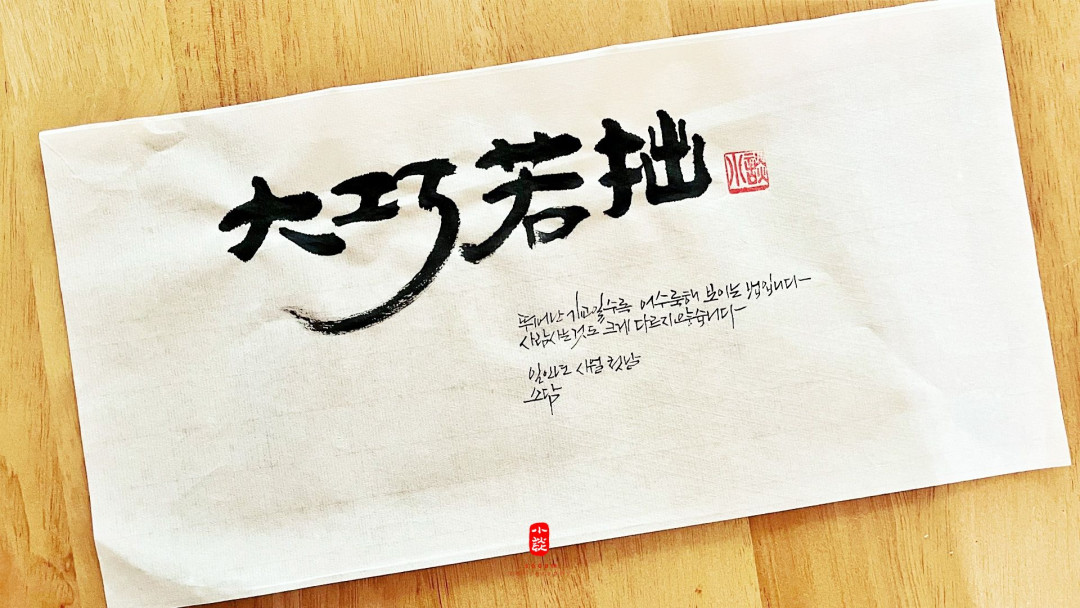 大巧若拙
小談
뛰어난 기교일수록 어수룩해 보이는 법입니다
사람사는것도 크게 다르지않습니다
일인년 사월 첫날
소담
小
談